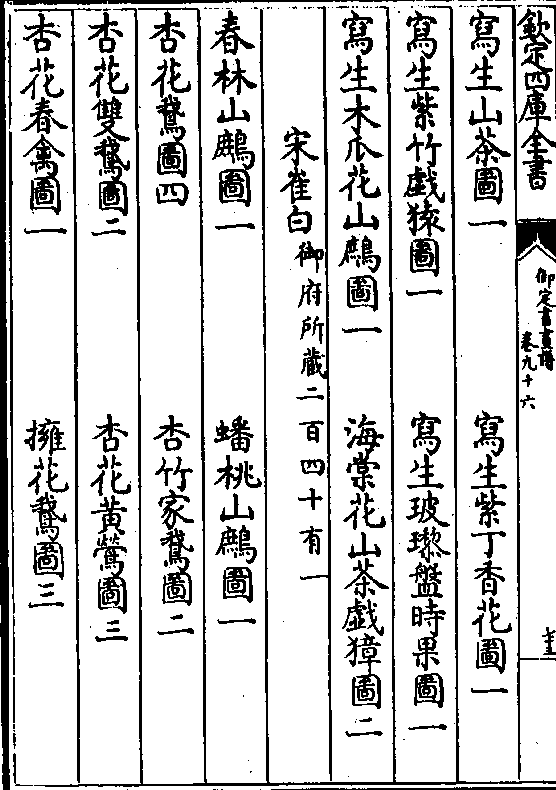 欽定四庫全書
御定書畫譜
卷九十六
寫生山茶圖一 寫生紫丁香花圖一
寫生紫竹戲猿圖一 寫生玻瓈盤時果圖一
寫生木瓜花山鷓圖一 海棠花山茶戲獐圖二
宋崔白御府所藏二百四十有一
春林山鷓圖一 蟠桃山鷓圖一
杏花鵞圖四 杏竹家鵞圖二
杏花雙鵞圖二 杏花黃鶯圖三
杏花春禽圖一 擁花鵞圖三